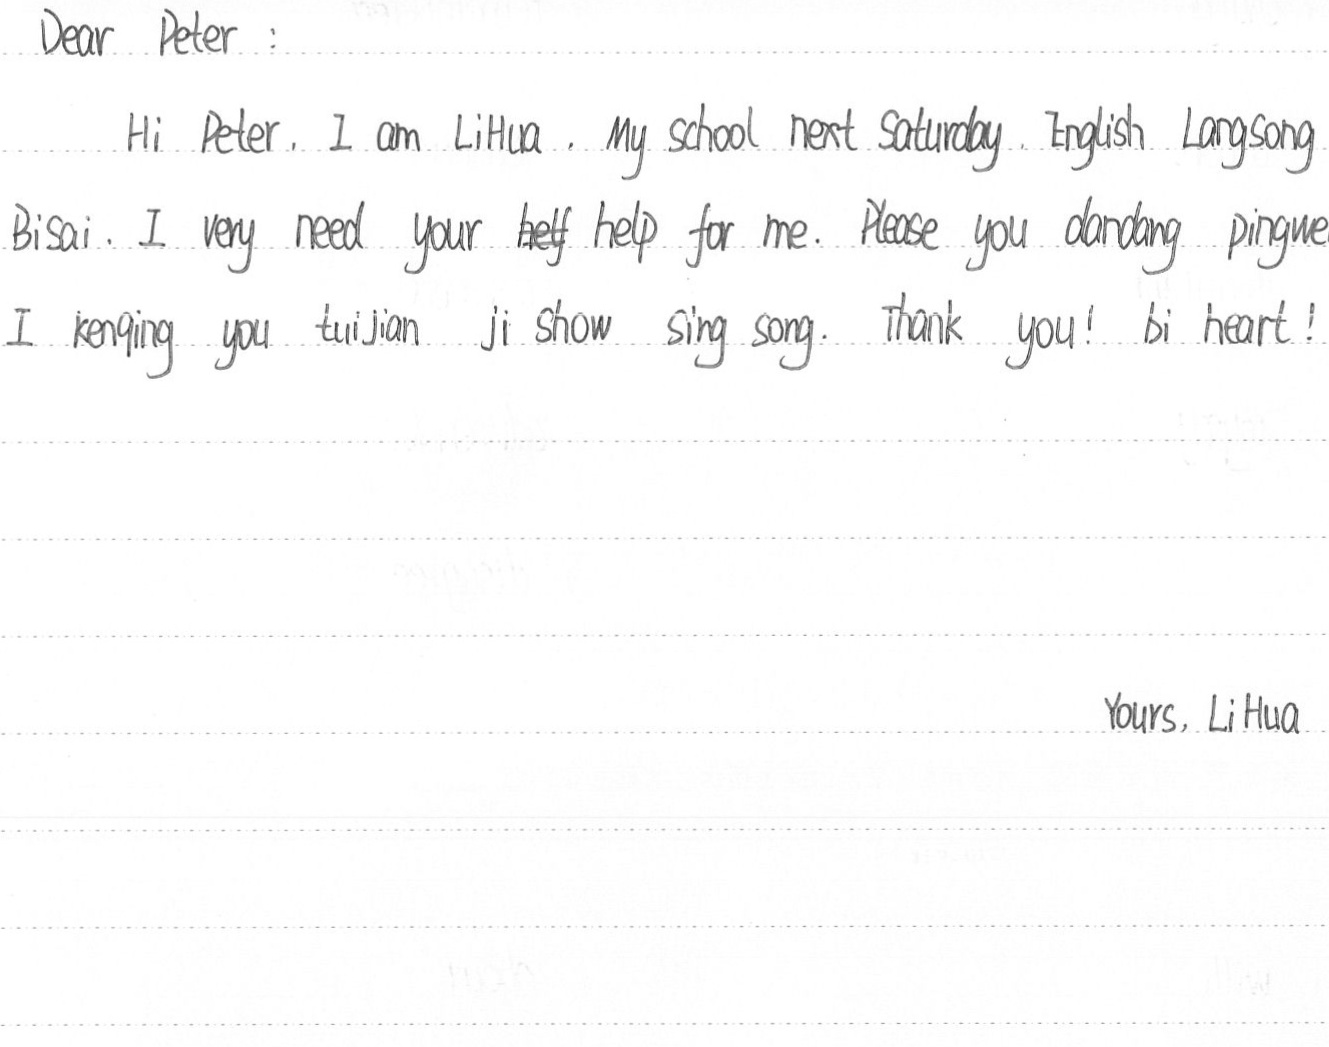 Dear Peter :
Hi Peter. I am LiHua. My school next Saturday. English Langsong
Bisai. I very need your help for me. Please you dandang pingwe
I kenqing you tuijian ji show sing song. Thank you! bi heart!
Yours, Li Hua